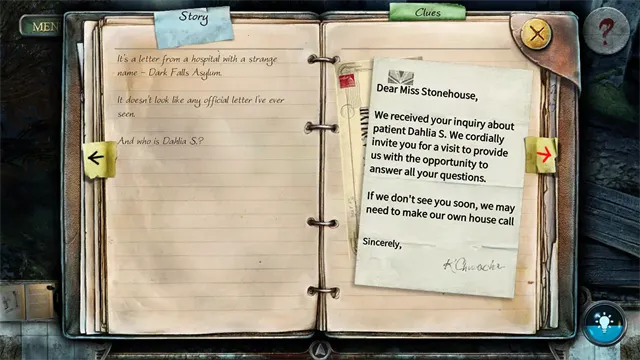 MEN
Story
Clues
It's a letter from a hospital with a strange
name - Dark Falls Asylum.
It doesn't look like any official letter I've ever
seen.
And who is Dahlia S.?
Dear Miss Stonehouse,
We received your inquiry about
patient Dahlia S. We cordially
invite you for a visit to provide
us with the opportunity to
answer all your questions.
If we don't see you soon, we may
need to make our own house call
Sincerely,
?